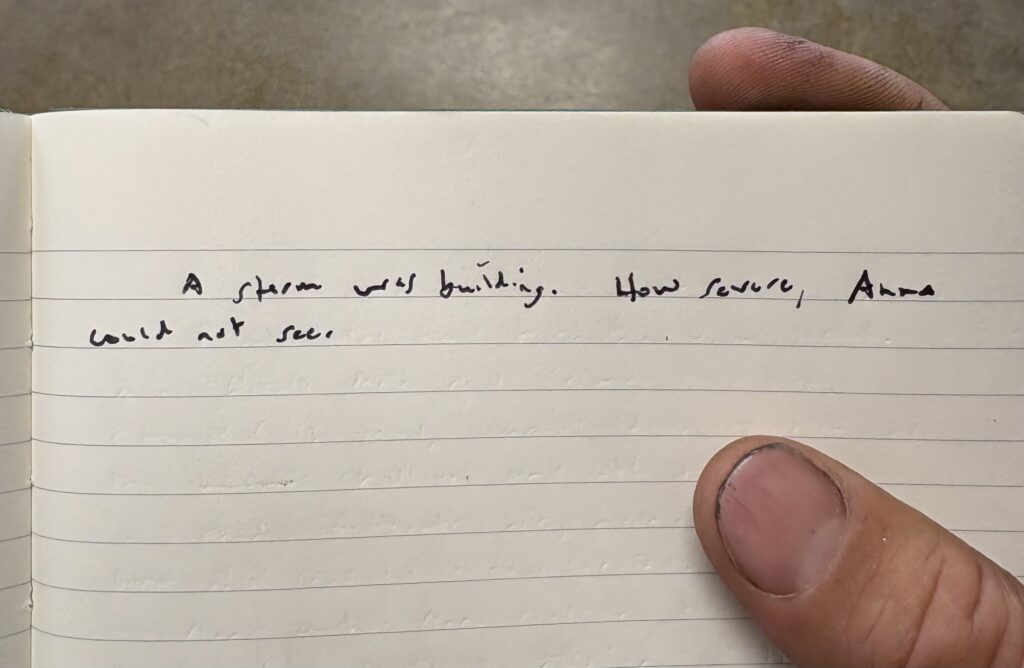 A storm was building. How severe, Anna
could not see.